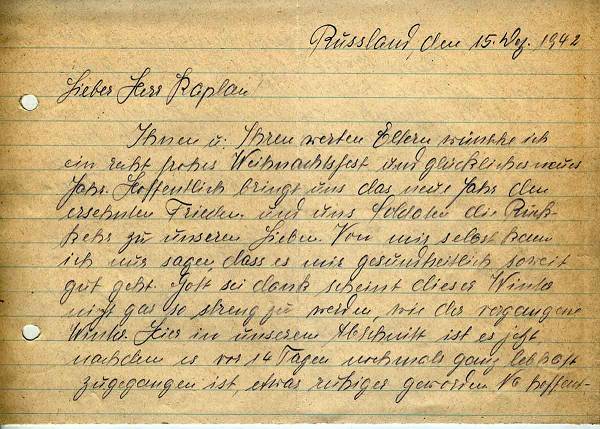 Russland, den 15. Dez. 1942
Lieber Herr Kaplan!
Ihnen u. Ihren werten Eltern wünsche ich
ein recht frohes Weihnachtsfest und glückliches neues
Jahr. Hoffentlich bringt uns das neue Jahr den
ersehnten Frieden und uns Soldaten die Rück-
kehr zu unseren Lieben. Von mir selbst kann
ich nur sagen, dass es mir gesundheitlich soweit
gut geht. Gott sei dank scheint dieser Winter
nicht gar so streng zu werden, wie der vergangene
Winter. Hier in unserem Abschnitt ist es jetzt
nachdem es vor 14 Tagen nochmals ganz lebhaft
zugegangen ist, etwas ruhiger geworden. Na hoffent-